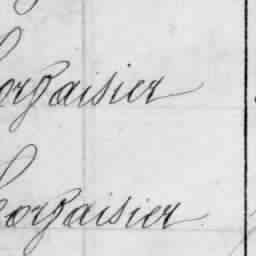 Corzaisier
Corzaisier